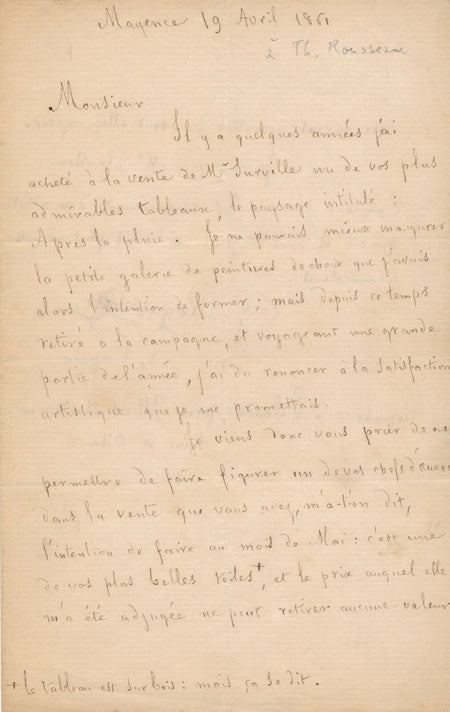 Mayence 19 Avril 1861
à Th. Rousseau
Monsieur
Il y a quelques années j'ai
acheté à la vente de Mr Surville un de vos plus
admirables tableaux, le paysage intitulé :
Après la pluie. Je ne pouvais mieux inaugurer
la petite galerie de peintures de choix que j'avais
alors l'intention de former ; mais depuis ce temps
retiré a la campagne, et voyageant une grande
partie de l'année, j'ai du renoncer à la satisfaction
artistique que je me promettais.
Je viens donc vous prier de me
permettre de faire figurer un de vos chefs d'œuvre
dans la vente que vous avez, m'a-t'on dit,
l'intention de faire au mois de Mai : c'est une
de vos plus belles toiles+, et le prix auquel elle
m'a été adjugée ne peut retirer aucune valeur
+ le tableau est sur bois : mais ça se dit.